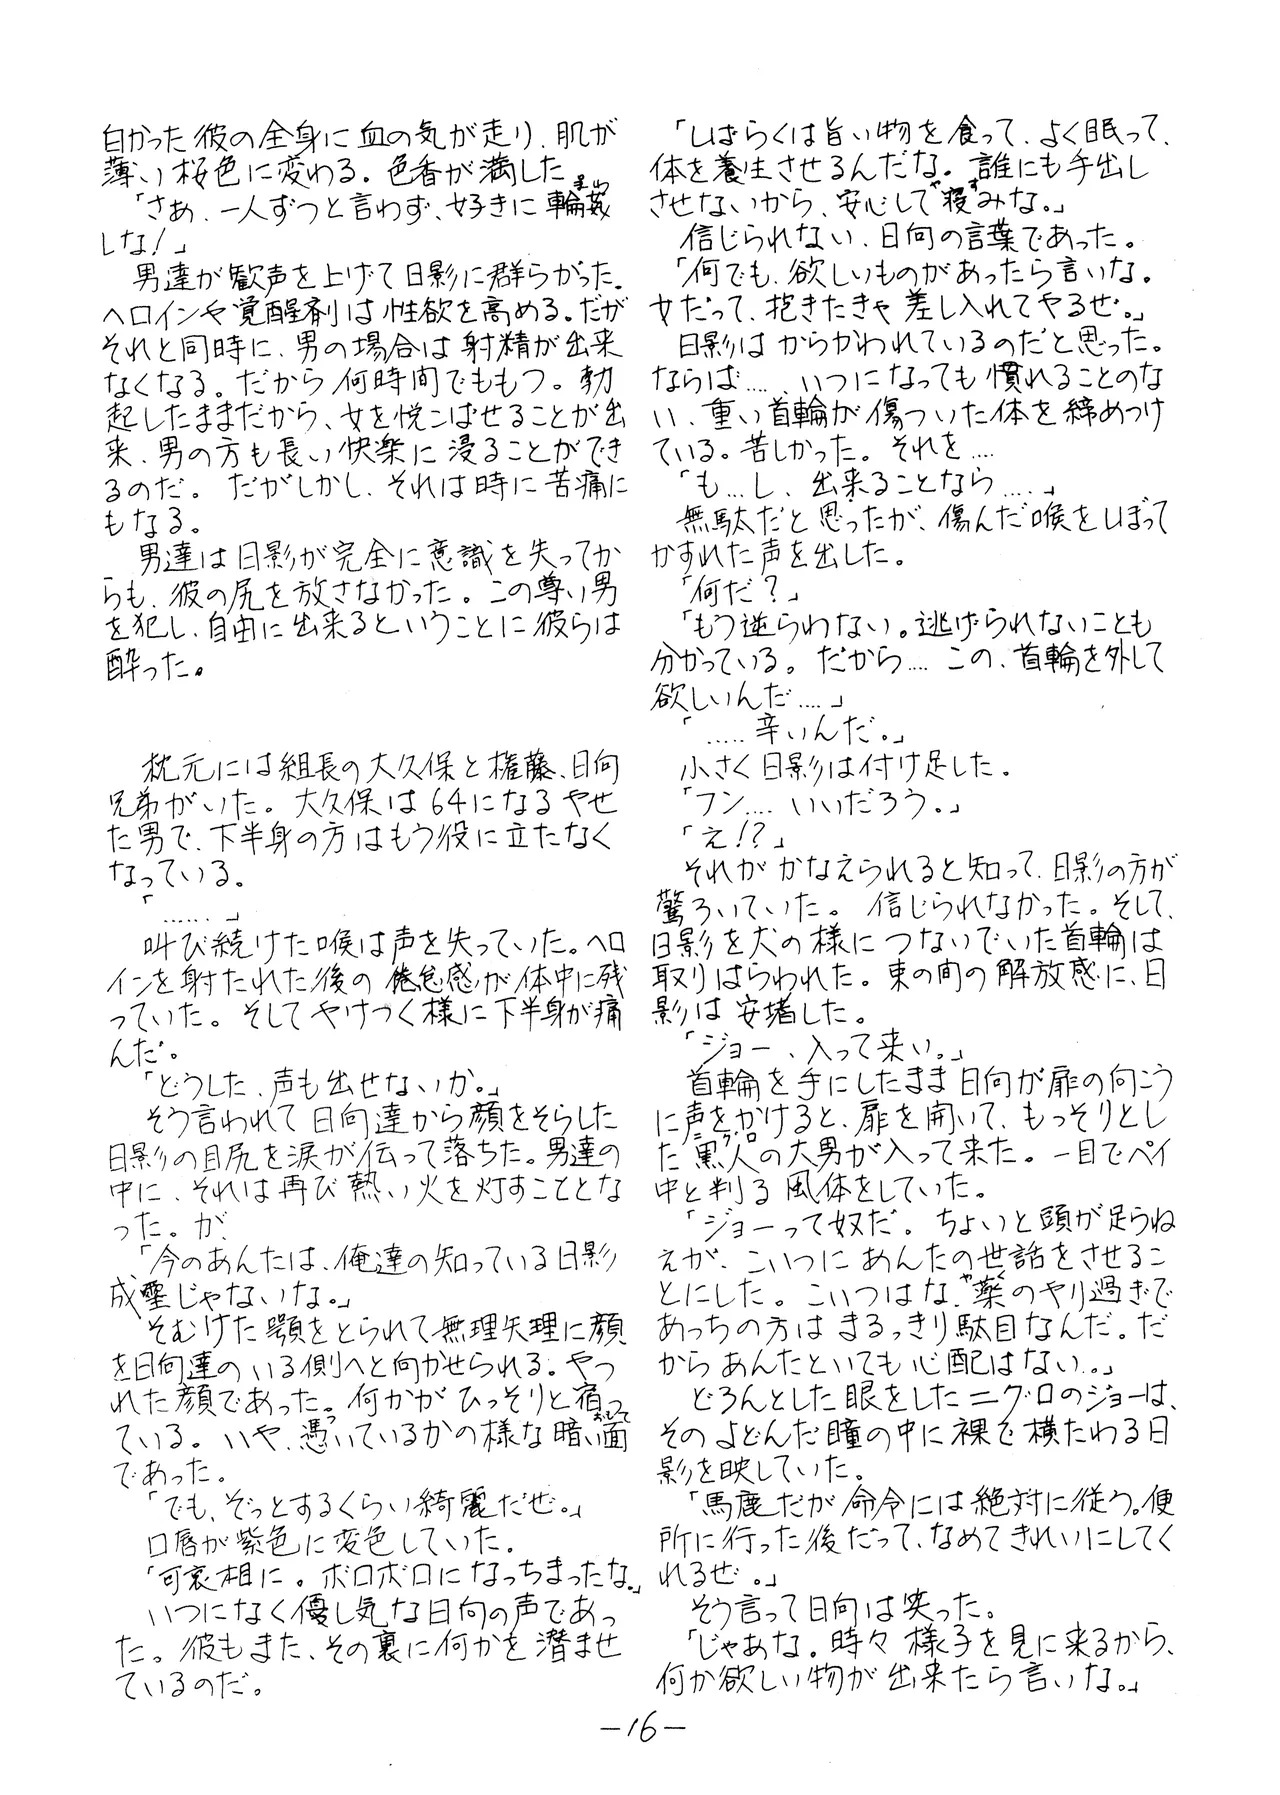 白かった彼の全身に血の気が走り、肌が
薄い桜色に変わる。色香が満した。
「さあ、一人ずつと言わず、好きに輪姦
しな!」
男達が歓声を上げて日影に群らがった。
ヘロインや覚醒剤は性欲を高める。だが
それと同時に、男の場合は射精が出来
なくなる。だから何時間でももつ。勃
起したままだから、女を悦こばせることが出
来、男の方も長い快楽に浸ることができ
るのだ。だがしかし、それは時に苦痛に
もなる。
男達は日影が完全に意識を失ってか
らも、彼の尻を放さなかった。この尊い男
を犯し、自由に出来るということに彼らは
酔った。
枕元には組長の大久保と権藤、日向
兄弟がいた。大久保は64になるやせ
た男で、下半身の方はもう役に立たなく
なっている。
「……」
叫び続けた喉は声を失っていた。ヘロ
インを射たれた後の倦怠感が体中に残
っていた。そしてやけつく様に下半身が痛
んだ。
「どうした、声も出せないか。」
そう言われて日向達から顔をそらした
日影の目尻を涙が伝って落ちた。男達の
中に、それは再び熱い火を灯すこととな
った。が、
「今のあんたは、俺達の知っている日影
成璽じゃないな。」
そむけた顎をとられて無理矢理に顔
を日向達のいる側へと向かせられる。やつ
れた顔であった。何かがひっそりと宿っ
ている。いや、憑いているかの様な暗い面
であった。
「でも、ぞっとするくらい綺麗だぜ。」
口唇が紫色に変色していた。
「可哀相に。ボロボロになっちまったな。」
いつになく優し気な日向の声であっ
た。彼もまた、その裏に何かを潜ませ
ているのだ。
「しばらくは旨い物を食って、よく眠って、
体を養生させるんだな。誰にも手出し
させないから、安心して寝みな。」
信じられない、日向の言葉であった。
「何でも、欲しいものがあったら言いな。
女だって、抱きたきゃ差し入れてやるぜ。」
日影はからかわれているのだと思った。
ならば…、いつになっても慣れることのな
い、重い首輪が傷ついた体を締めつけ
ている。苦しかった。それを…
「も…し、出来ることなら…。」
無駄だと思ったが、傷んだ喉をしぼって
かすれた声を出した。
「何だ?」
「もう逆らわない。逃げられないことも
分かっている。だから…この、首輪を外して
欲しいんだ…」
「……辛いんだ。」
小さく日影は付け足した。
「フン…いいだろう。」
「え!?」
それがかなえられると知って、日影の方が
驚ろいていた。信じられなかった。そして、
日影を犬の様につないでいた首輪は
取りはらわれた。束の間の解放感に、日
影は安堵した。
「ジョー、入って来い。」
首輪を手にしたまま日向が扉の向こう
に声をかけると、扉を開いて、もっそりとし
た黒人の大男が入って来た。一目でペイ
中と判る風体をしていた。
「ジョーって奴だ。ちょいと頭が足らね
えが、こいつにあんたの世話をさせるこ
とにした。こいつはな、薬のやり過ぎで
あっちの方はまるっきり駄目なんだ。だ
からあんたといても心配はない。」
どろんとした眼をしたニグロのジョーは、
そのよどんだ瞳の中に裸で横たわる日
影を映していた。
「馬鹿だが命令には絶対に従う。便
所に行った後だって、なめてきれいにしてく
れるぜ。」
そう言って日向は笑った。
「じゃあな。時々様子を見に来るから、
何か欲しい物が出来たら言いな。」
-16-